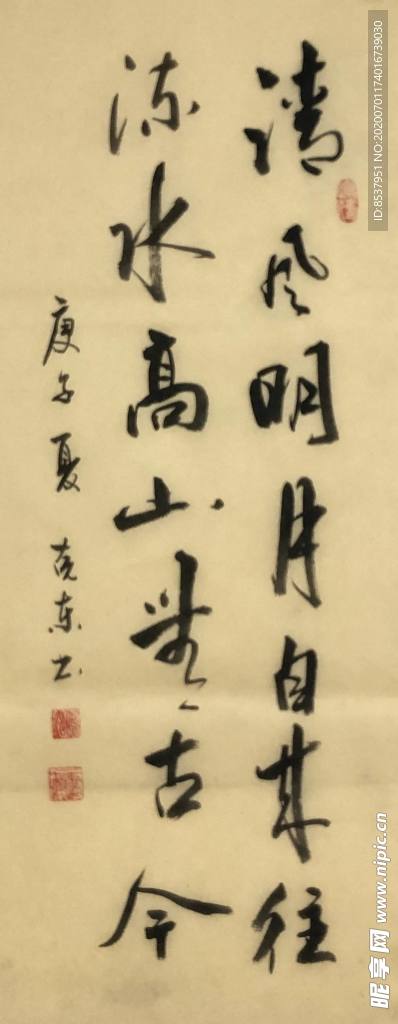 清风明月自来往
流水高山无古今
庚子夏 克东书
ID:8537951 NO:20200701174016739030
昵享网 www.nipic.cn